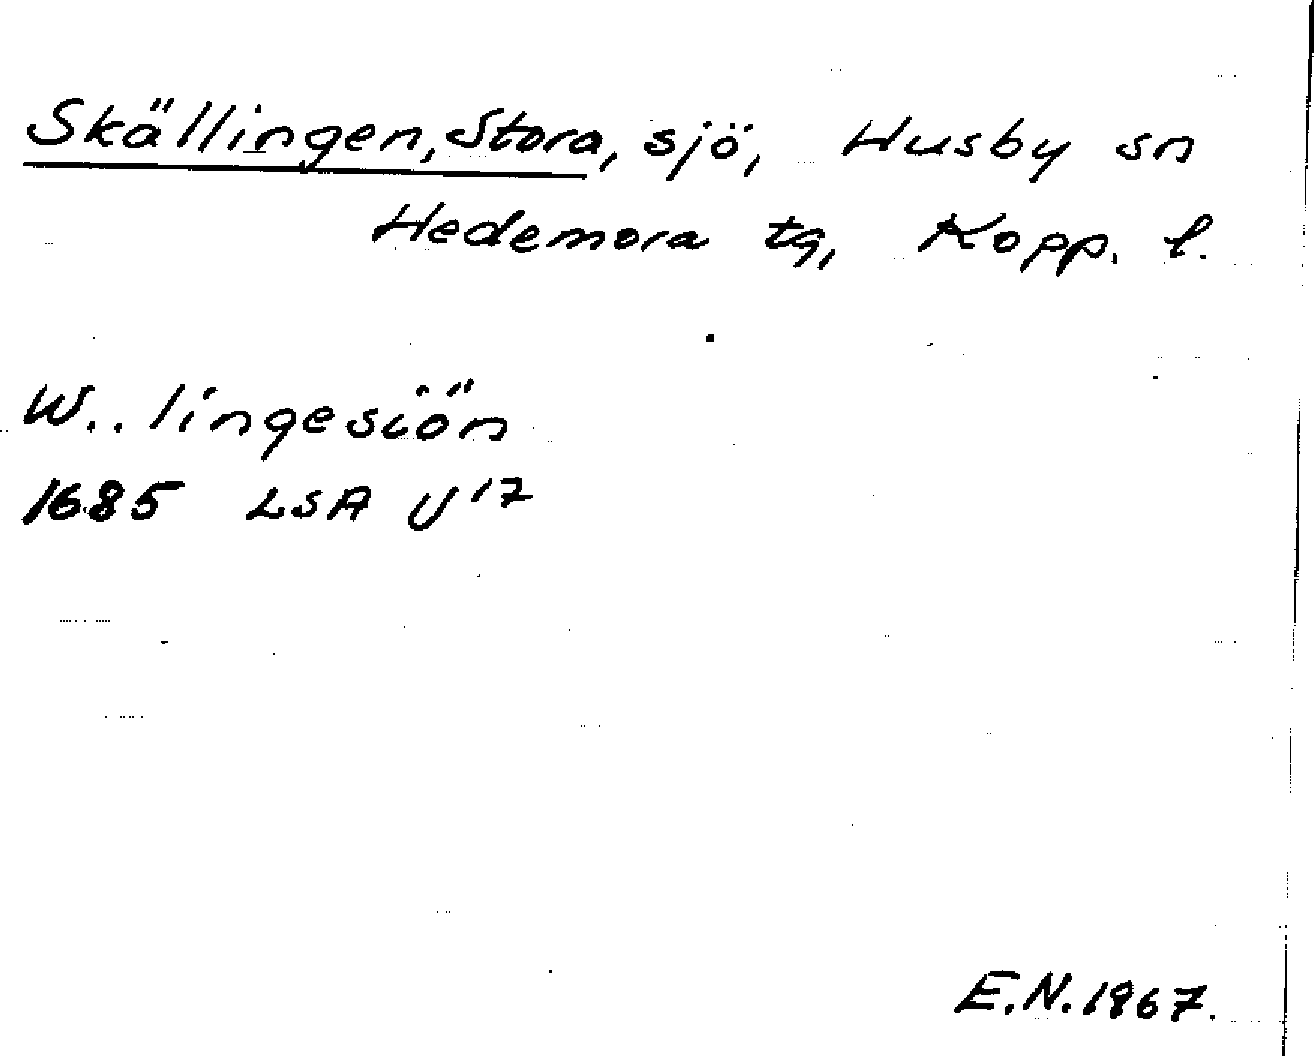 Skällingen, Stora, sjö, Husby sn
Hedemora tg, Kopp. l.
W.. lingesiön
1685 LSA U¹⁷
E.N. 1967.